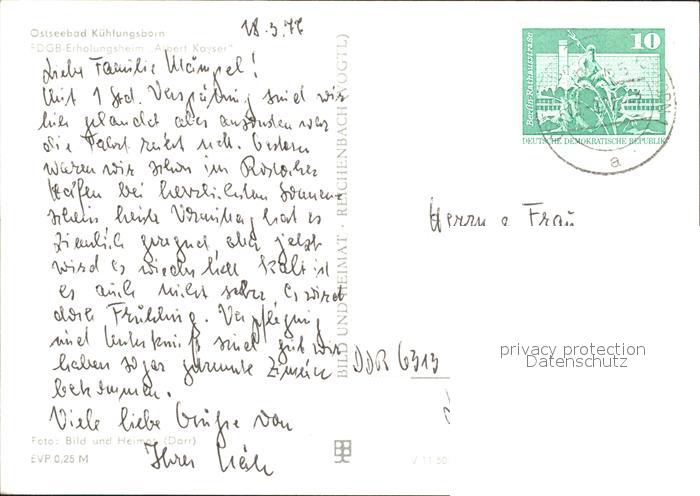 18.3.77
Ostseebad Kühlungsborn
FDGB-Erholungsheim „Albert Kayser"
Liebe Familie Mämpel!
Mit 1 Std. Verspätung sind wir
hier aber ansonsten war
die Fahrt nett. Gestern
waren wir schon im Rostocker
Hafen bei herrlichsten Sonnen-
schein heute Vormittag hat es
ziemlich geregnet aber jetzt
wird es wieder hell kalt ist
es auch nicht sehr. Es wird
doch Frühling. Verpflegung
und Unterkunft sind gut wir
haben sogar Zimmer
bekommen.
Viele liebe Grüße von
Ihrer
Foto: Bild und Heimat (Darr)
EVP 0,25 M
V 11 50
BILD UND HEIMAT · REICHENBACH (VOGTL)
10
Berlin-Rathausstraße
DEUTSCHE DEMOKRATISCHE REPUBLIK
a
Herrn u Frau
DDR 6313
privacy protection
Datenschutz